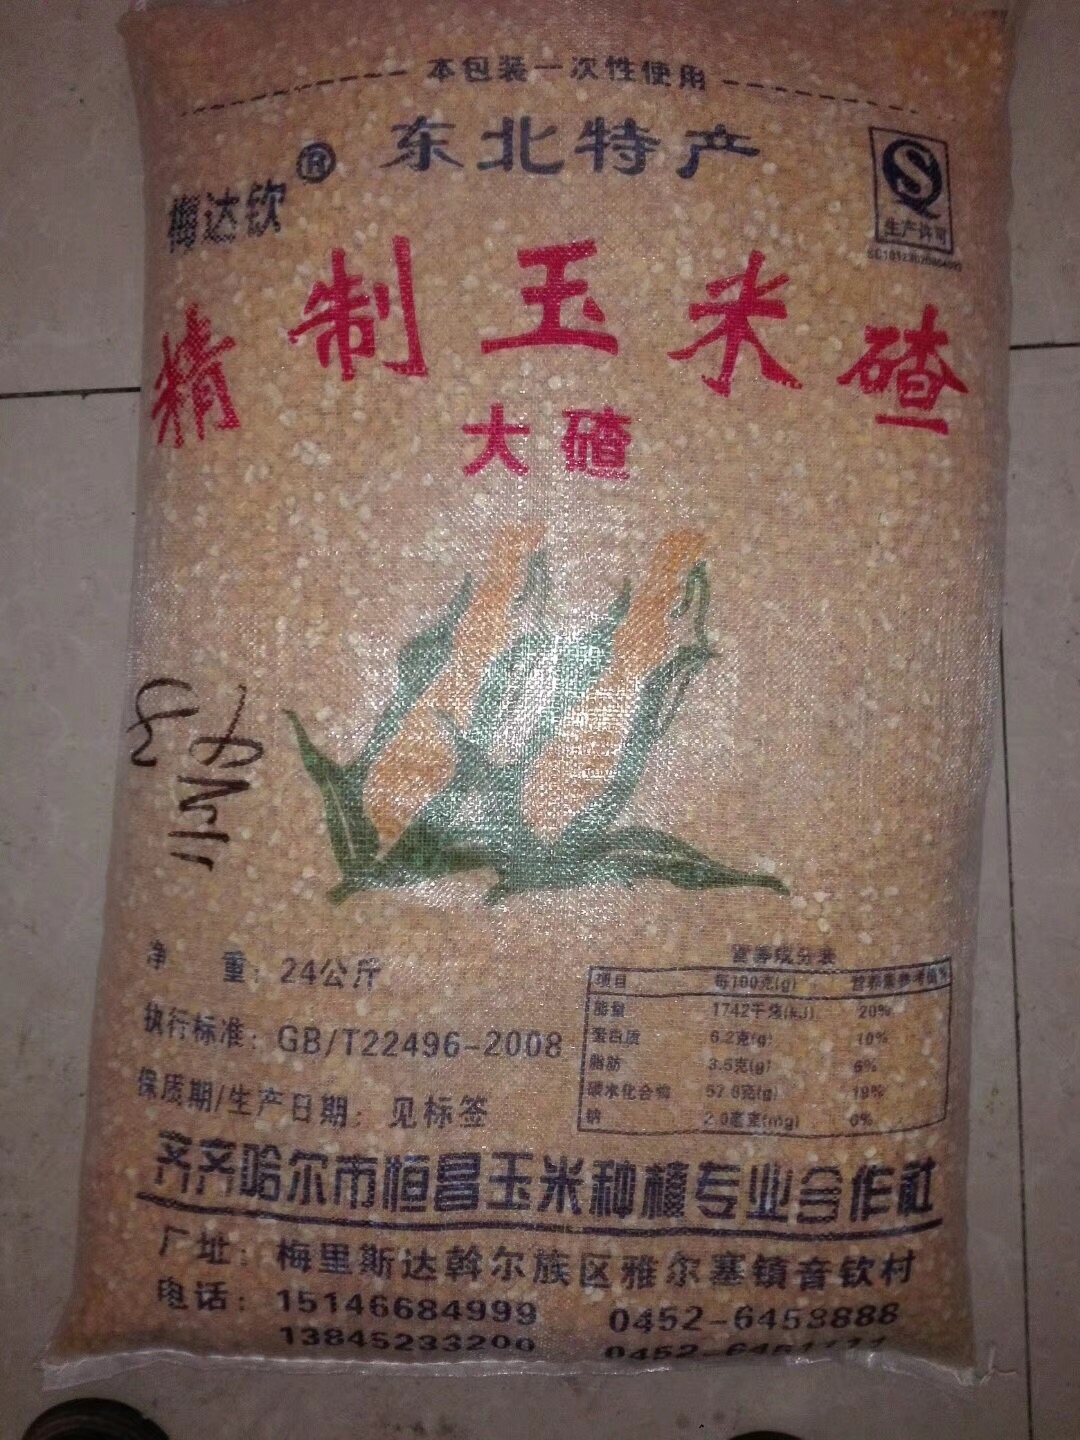 本包装一次性使用
东北特产
梅达钦®
生产许可
精制玉米碴
大碴
净 重：24公斤
执行标准：GB/T22496-2008
保质期/生产日期：见标签
营养成分表
项目 每100克(g) 营养素参考值%
能量 1742千焦(kJ) 20%
蛋白质 6.2克(g) 10%
脂肪 3.5克(g) 6%
碳水化合物 57.6克(g) 19%
钠 2.0毫克(mg) 0%
齐齐哈尔市恒昌玉米种植专业合作社
厂址：梅里斯达斡尔族区雅尔塞镇音钦村
电话：15146684999 0452-6458888
13845233200